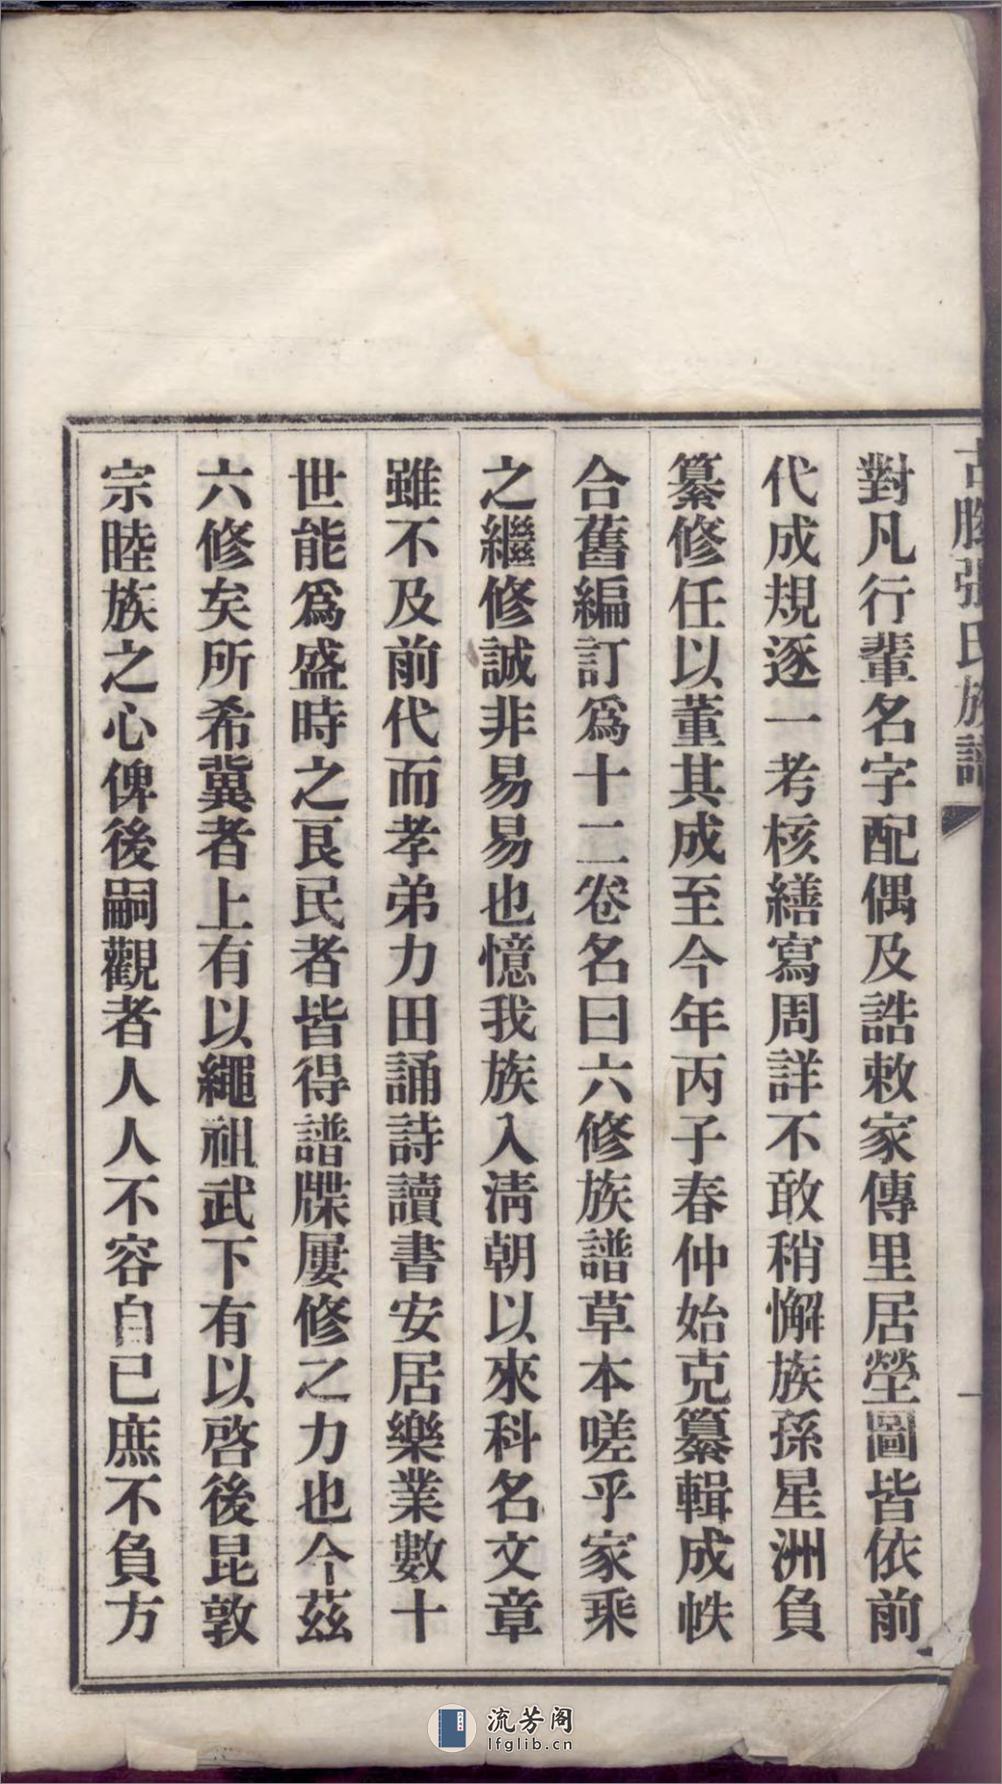 古滕張氏族譜
一
對凡行輩名字配偶及誥敕家傳里居塋圖皆依前
代成規逐一考核繕寫周詳不敢稍懈族孫星洲負
纂修任以董其成至今年丙子春仲始克纂輯成帙
合舊編訂爲十二卷名曰六修族譜草本嗟乎家乘
之繼修誠非易易也憶我族入淸朝以來科名文章
雖不及前代而孝弟力田誦詩讀書安居樂業數十
世能爲盛時之良民者皆得譜牒屢修之力也今茲
六修矣所希冀者上有以繩祖武下有以啓後昆敦
宗睦族之心俾後嗣觀者人人不容自已庶不負方
流芳阁
lfglib.cn